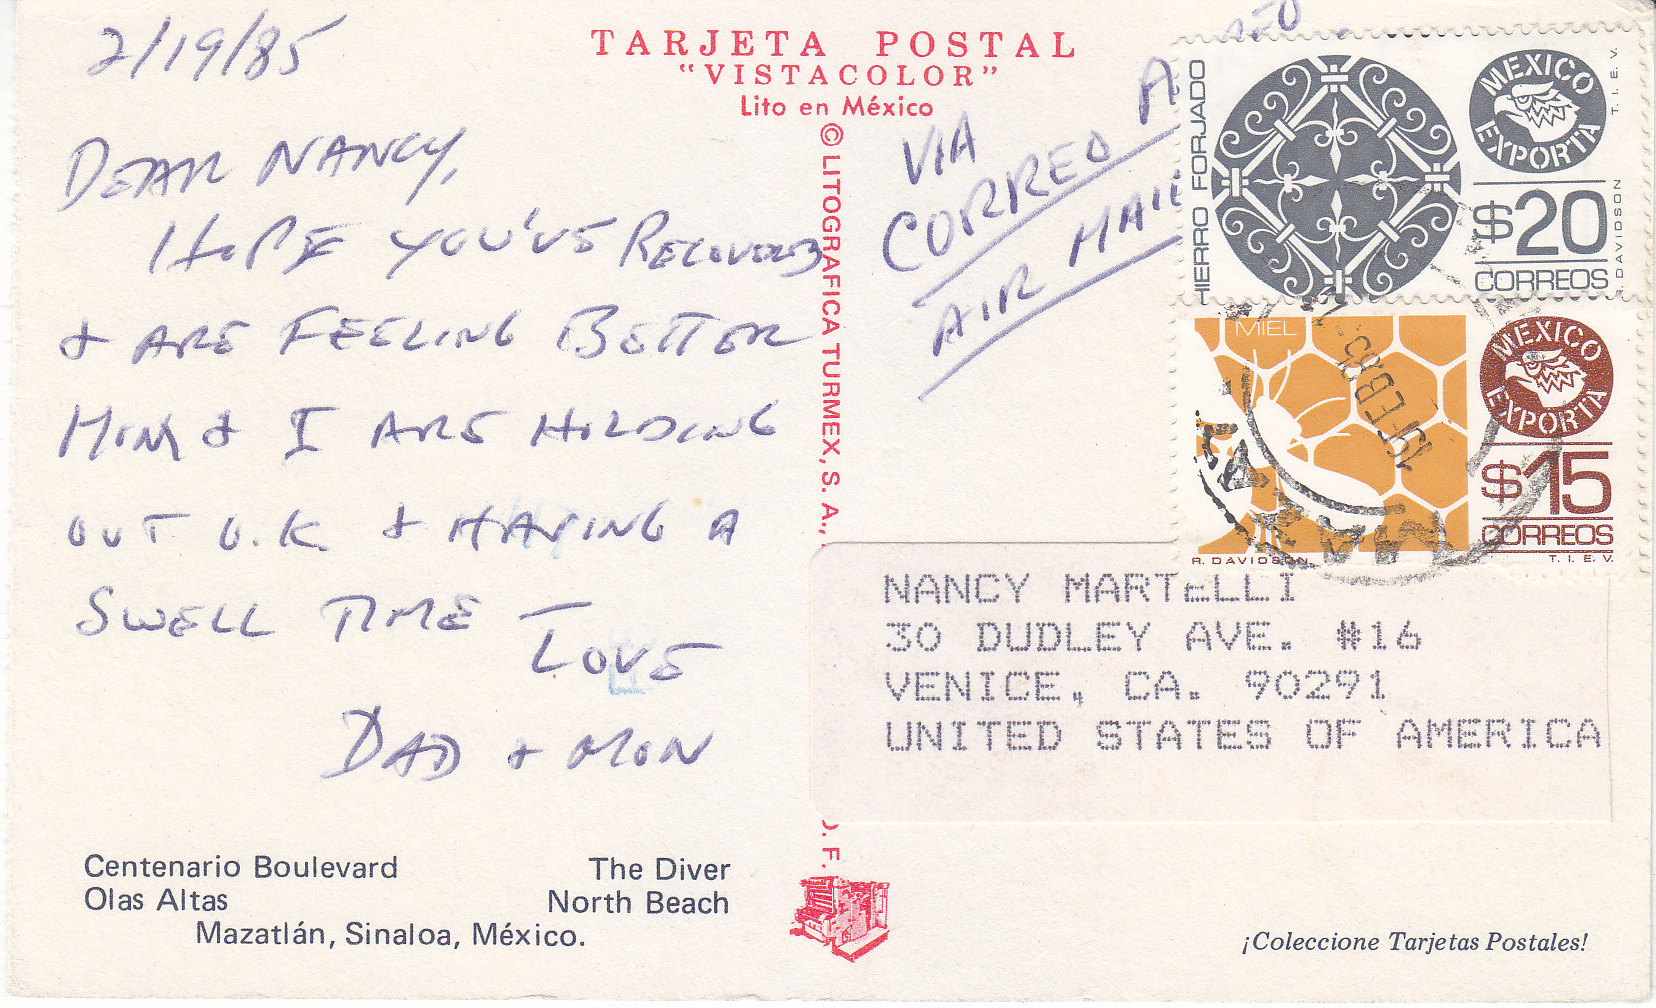 2/19/85
DEAR NANCY,
HOPE YOU'VE RECOVERED
& ARE FEELING BETTER
MOM & I ARE HOLDING
OUT O.K. & HAVING A
SWELL TIME –
LOVE
DAD & MOM
Centenario Boulevard
Olas Altas
The Diver
North Beach
Mazatlán, Sinaloa, México.
TARJETA POSTAL
"VISTACOLOR"
Lito en México
© LITOGRAFICA TURMEX, S. A.,
D. F.
VIA
CORREO AEREO
AIR MAIL
HIERRO FORJADO
MEXICO
EXPORTA
T. I. E. V.
$20
CORREOS
DAVIDSON
MIEL
MEXICO
EXPORTA
$15
CORREOS
R. DAVIDSON
T. I. E. V.
19 FEB 85
NANCY MARTELLI
30 DUDLEY AVE. #16
VENICE, CA. 90291
UNITED STATES OF AMERICA
¡Coleccione Tarjetas Postales!